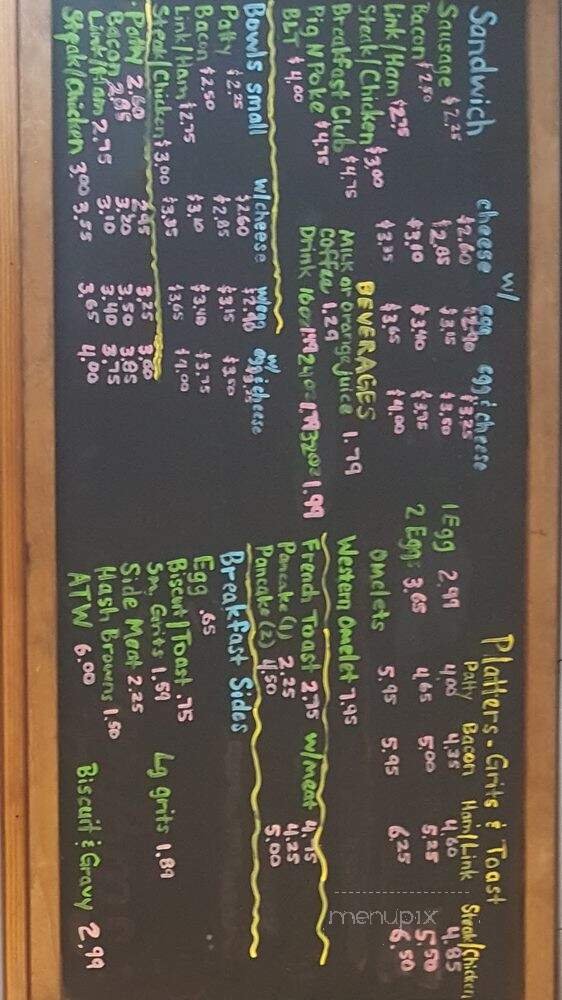 Sandwich
w/
cheese egg egg & cheese
Sausage $2.25 $2.60 $2.90 $3.25
Bacon $2.50 $2.85 $3.15 $3.50
Link/Ham $2.75 $3.10 $3.40 $3.75
Steak/Chicken $3.00 $3.35 $3.65 $4.00
Breakfast Club $4.75
Pig N Poke $4.75
BLT $4.00
BEVERAGES
Milk or Orange juice 1.79
Coffee 1.29
Drink 16oz 1.49 24oz 1.79 32oz 1.99
Bowls small w/cheese w/egg w/ egg & cheese
Patty $2.25 $2.60 $2.90 $3.25
Bacon $2.50 $2.85 $3.15 $3.50
Link/Ham $2.75 $3.10 $3.40 $3.75
Steak/Chicken $3.00 $3.35 $3.65 $4.00
Patty 2.60 2.95 3.25 3.60
Bacon 2.85 3.20 3.50 3.85
Link/Ham 2.75 3.10 3.40 3.75
Steak/Chicken 3.00 3.35 3.65 4.00
Platters - Grits & Toast
Patty Bacon Ham/Link Steak/Chicken
1 Egg 2.99 4.00 4.35 4.60 4.85
2 Eggs 3.65 4.65 5.00 5.25 5.50
Omelets 5.95 5.95 6.25 6.50
Western Omelet 7.95
French Toast 2.75 w/meat 4.75
Pancake (1) 2.25 4.25
Pancake (2) 4.50 5.00
Breakfast Sides
Egg .65
Biscuit/Toast .75
Sm. Grits 1.59 Lg grits 1.89
Side Meat 2.25
Hash Browns 1.50
ATW 6.00 Biscuit & Gravy 2.99
menupix